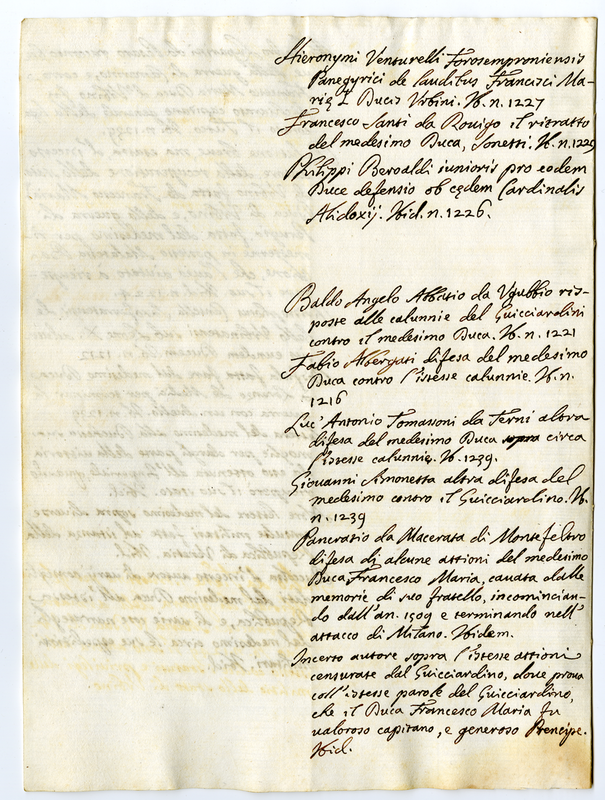 Hieronymi Venturelli Forosemproniensis
Panegyrici de laudibus Francisci Ma-
rię I Ducis Urbini. Ib. n. 1227
Francesco Santi da Rovigo il ritratto
del medesimo Duca, Sonetti. Ib. n. 1225
Philippi Beroaldi iunioris pro eodem
Duce defensio ob cędem Cardinalis
Alidoxij. Ibid. n. 1226.
Baldo Angelo Abbatio da Vgubbio ris-
poste alle calunnie del Guicciardini
contro il medesimo Duca. Ib. n. 1221
Fabio Albergati difesa del medesimo
Duca contro l'istesse calunnie. Ib. n.
1216
Luc' Antonio Tomassoni da Terni altra
difesa del medesimo Duca sopra circa
l'istesse calunnie. Ib. 1239.
Giovanni Amonetta altra difesa del
medesimo contro il Guicciardino. Ib.
n. 1239
Pancratio da Macerata di Montefeltro
difesa di alcune attioni del medesimo
Duca Francesco Maria, cavata dalle
memorie di suo fratello, incomincian-
do dall'an. 1509 e terminando nell'
attacco di Milano. Ibidem.
Incerto autore sopra l'istesse attioni
censurate dal Guicciardino, dove prova
coll'istesse parole del Guicciardino,
che il Duca Francesco Maria fu
valoroso capitano, e generoso Prencipe.
Ibid.